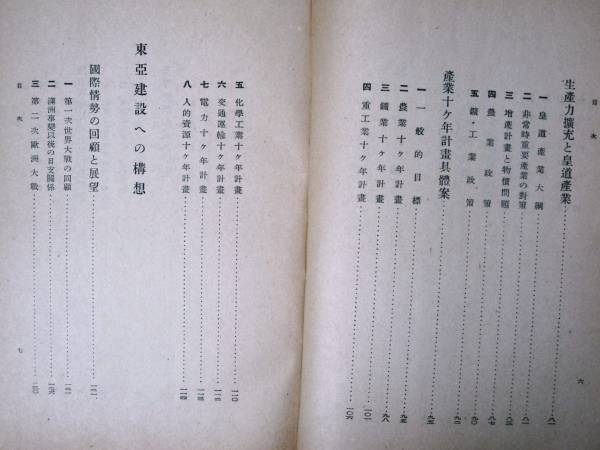 目次
生產力擴充と皇道產業……八一
一 皇道產業大綱……八一
二 非常時重要產業の對策……八二
三 增產計畫と物價問題……八三
四 農業政策……八七
五 鑛・工業政策……九〇
產業十ケ年計畫具體案……九二
一 一般的目標……九三
二 農業十ケ年計畫……九五
三 鑛業十ケ年計畫……九八
四 重工業十ケ年計畫……一〇六
六
五 化學工業十ケ年計畫……一一〇
六 交通運輸十ケ年計畫……一一二
七 電力十ケ年計畫……一一三
八 人的資源十ケ年計畫……一一四
東亞建設への構想
國際情勢の回顧と展望……一二一
一 第一次世界大戰の回顧……一二一
二 滿洲事變以後の日支關係……一二六
三 第二次歐洲大戰
目次
七